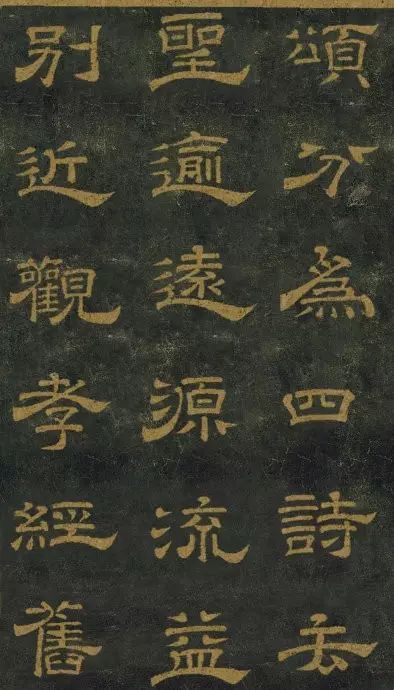 頌分爲四詩去
聖逾遠源流益
別近觀孝經舊